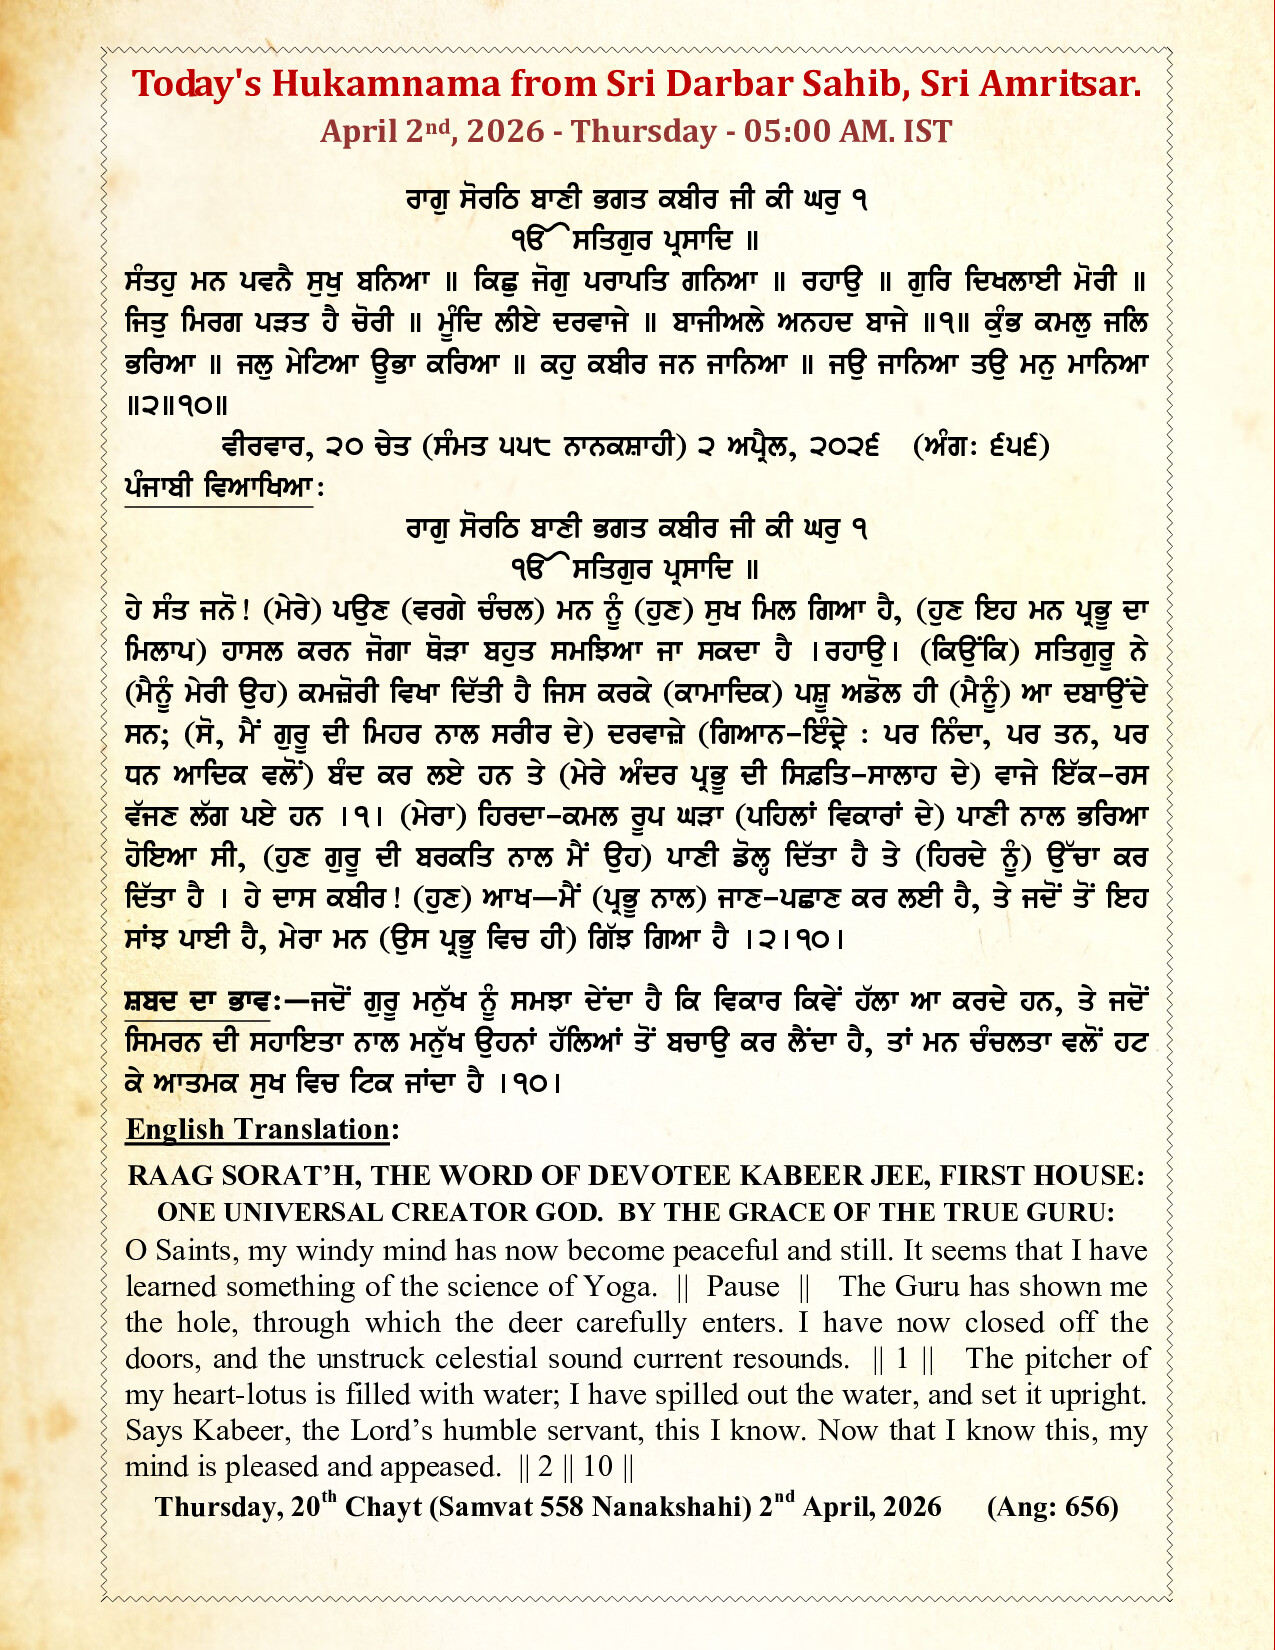 Today's Hukamnama from Sri Darbar Sahib, Sri Amritsar.
April 2nd, 2026 - Thursday - 05:00 AM. IST
ਰਾਗੁ ਸੋਰਠਿ ਬਾਣੀ ਭਗਤ ਕਬੀਰ ਜੀ ਕੀ ਘਰੁ ੧
ੴ ਸਤਿਗੁਰ ਪ੍ਰਸਾਦਿ ॥
ਸੰਤਹੁ ਮਨ ਪਵਨੈ ਸੁਖੁ ਬਨਿਆ ॥ ਕਿਛੁ ਜੋਗੁ ਪਰਾਪਤਿ ਗਨਿਆ ॥ ਰਹਾਉ ॥ ਗੁਰਿ ਦਿਖਲਾਈ ਮੋਰੀ ॥
ਜਿਤੁ ਮਿਰਗ ਪੜਤ ਹੈ ਚੋਰੀ ॥ ਮੂੰਦਿ ਲੀਏ ਦਰਵਾਜੇ ॥ ਬਾਜੀਅਲੇ ਅਨਹਦ ਬਾਜੇ ॥੧॥ ਕੁੰਭ ਕਮਲੁ ਜਲਿ
ਭਰਿਆ ॥ ਜਲੁ ਮੇਟਿਆ ਊਭਾ ਕਰਿਆ ॥ ਕਹੁ ਕਬੀਰ ਜਨ ਜਾਨਿਆ ॥ ਜਉ ਜਾਨਿਆ ਤਉ ਮਨੁ ਮਾਨਿਆ
॥੨॥੧੦॥
ਵੀਰਵਾਰ, ੨੦ ਚੇਤ (ਸੰਮਤ ੫੫੮ ਨਾਨਕਸ਼ਾਹੀ) ੨ ਅਪ੍ਰੈਲ, ੨੦੨੬ (ਅੰਗ: ੬੫੬)
ਪੰਜਾਬੀ ਵਿਆਖਿਆ:
ਰਾਗੁ ਸੋਰਠਿ ਬਾਣੀ ਭਗਤ ਕਬੀਰ ਜੀ ਕੀ ਘਰੁ ੧
ੴ ਸਤਿਗੁਰ ਪ੍ਰਸਾਦਿ ॥
ਹੇ ਸੰਤ ਜਨੋ! (ਮੇਰੇ) ਪਉਣ (ਵਰਗੇ ਚੰਚਲ) ਮਨ ਨੂੰ (ਹੁਣ) ਸੁਖ ਮਿਲ ਗਿਆ ਹੈ, (ਹੁਣ ਇਹ ਮਨ ਪ੍ਰਭੂ ਦਾ
ਮਿਲਾਪ) ਹਾਸਲ ਕਰਨ ਜੋਗਾ ਥੋੜਾ ਬਹੁਤ ਸਮਝਿਆ ਜਾ ਸਕਦਾ ਹੈ ।ਰਹਾਉ। (ਕਿਉਂਕਿ) ਸਤਿਗੁਰੂ ਨੇ
(ਮੈਨੂੰ ਮੇਰੀ ਉਹ) ਕਮਜ਼ੋਰੀ ਵਿਖਾ ਦਿੱਤੀ ਹੈ ਜਿਸ ਕਰਕੇ (ਕਾਮਾਦਿਕ) ਪਸ਼ੂ ਅਡੋਲ ਹੀ (ਮੈਨੂੰ) ਆ ਦਬਾਉਂਦੇ
ਸਨ; (ਸੋ, ਮੈਂ ਗੁਰੂ ਦੀ ਮਿਹਰ ਨਾਲ ਸਰੀਰ ਦੇ) ਦਰਵਾਜ਼ੇ (ਗਿਆਨ-ਇੰਦ੍ਰੇ : ਪਰ ਨਿੰਦਾ, ਪਰ ਤਨ, ਪਰ
ਧਨ ਆਦਿਕ ਵਲੋਂ) ਬੰਦ ਕਰ ਲਏ ਹਨ ਤੇ (ਮੇਰੇ ਅੰਦਰ ਪ੍ਰਭੂ ਦੀ ਸਿਫ਼ਤਿ-ਸਾਲਾਹ ਦੇ) ਵਾਜੇ ਇੱਕ-ਰਸ
ਵੱਜਣ ਲੱਗ ਪਏ ਹਨ ।੧। (ਮੇਰਾ) ਹਿਰਦਾ-ਕਮਲ ਰੂਪ ਘੜਾ (ਪਹਿਲਾਂ ਵਿਕਾਰਾਂ ਦੇ) ਪਾਣੀ ਨਾਲ ਭਰਿਆ
ਹੋਇਆ ਸੀ, (ਹੁਣ ਗੁਰੂ ਦੀ ਬਰਕਤਿ ਨਾਲ ਮੈਂ ਉਹ) ਪਾਣੀ ਡੋਲ੍ਹ ਦਿੱਤਾ ਹੈ ਤੇ (ਹਿਰਦੇ ਨੂੰ) ਉੱਚਾ ਕਰ
ਦਿੱਤਾ ਹੈ । ਹੇ ਦਾਸ ਕਬੀਰ! (ਹੁਣ) ਆਖ—ਮੈਂ (ਪ੍ਰਭੂ ਨਾਲ) ਜਾਣ-ਪਛਾਣ ਕਰ ਲਈ ਹੈ, ਤੇ ਜਦੋਂ ਤੋਂ ਇਹ
ਸਾਂਝ ਪਾਈ ਹੈ, ਮੇਰਾ ਮਨ (ਉਸ ਪ੍ਰਭੂ ਵਿਚ ਹੀ) ਗਿੱਝ ਗਿਆ ਹੈ ।੨।੧੦।
ਸ਼ਬਦ ਦਾ ਭਾਵ:—ਜਦੋਂ ਗੁਰੂ ਮਨੁੱਖ ਨੂੰ ਸਮਝਾ ਦੇਂਦਾ ਹੈ ਕਿ ਵਿਕਾਰ ਕਿਵੇਂ ਹੱਲਾ ਆ ਕਰਦੇ ਹਨ, ਤੇ ਜਦੋਂ
ਸਿਮਰਨ ਦੀ ਸਹਾਇਤਾ ਨਾਲ ਮਨੁੱਖ ਉਹਨਾਂ ਹੱਲਿਆਂ ਤੋਂ ਬਚਾਉ ਕਰ ਲੈਂਦਾ ਹੈ, ਤਾਂ ਮਨ ਚੰਚਲਤਾ ਵਲੋਂ ਹਟ
ਕੇ ਆਤਮਕ ਸੁਖ ਵਿਚ ਟਿਕ ਜਾਂਦਾ ਹੈ ।੧੦।
English Translation:
RAAG SORAT’H, THE WORD OF DEVOTEE KABEER JEE, FIRST HOUSE:
ONE UNIVERSAL CREATOR GOD. BY THE GRACE OF THE TRUE GURU:
O Saints, my windy mind has now become peaceful and still. It seems that I have
learned something of the science of Yoga. || Pause || The Guru has shown me
the hole, through which the deer carefully enters. I have now closed off the
doors, and the unstruck celestial sound current resounds. || 1 || The pitcher of
my heart-lotus is filled with water; I have spilled out the water, and set it upright.
Says Kabeer, the Lord’s humble servant, this I know. Now that I know this, my
mind is pleased and appeased. || 2 || 10 ||
Thursday, 20th Chayt (Samvat 558 Nanakshahi) 2nd April, 2026 (Ang: 656)